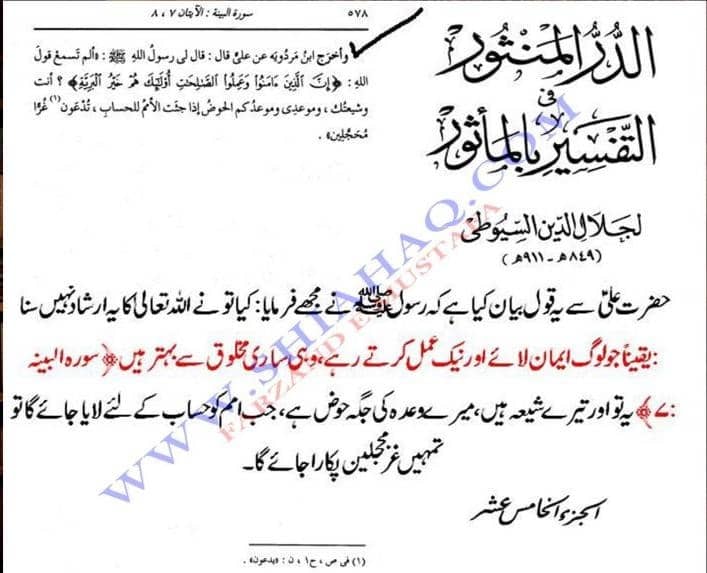 ٥٧٨
سورة البينة : الآيتان ٧ ، ٨
وأخرج ابنُ مَرْدُويَه عن عليٍّ قال : قال لى رسولُ اللهِ ﷺ : «ألم تسمعْ قولَ
اللهِ : ﴿إِنَّ الَّذِينَ ءَامَنُوا وَعَمِلُوا الصَّالِحَاتِ أُوْلَئِكَ هُمْ خَيْرُ الْبَرِيَّةِ﴾ ؟ أنت
وشيعتُك ، وموعدى وموعدُكم الحوضُ إذا جئت الأممُ للحسابِ ، تُدْعَون(١) غُرًّا
مُحَجَّلِين» .
الدُّرُّ المَنْثُور
فى
التَّفْسِيرِ بِالمَأْثُور
لجلال الدين السيوطى
(٨٤٩هـ - ٩١١هـ)
حضرت علیؑ سے یہ قول بیان کیا ہے کہ رسول ﷺ نے مجھے فرمایا: کیا تو نے اللہ تعالیٰ کا یہ ارشاد نہیں سنا
:یقیناً جو لوگ ایمان لائے اور نیک عمل کرتے رہے، وہی ساری مخلوق سے بہتر ہیں ﴿سورہ البینہ
۷﴾: یہ تو اور تیرے شیعہ ہیں، میرے وعدہ کی جگہ حوض ہے، جب امم کو حساب کے لئے لایا جائے گا تو
تمہیں غر محجلین پکارا جائے گا۔
الجزء الخامس عشر
(١) فى ص ، ح ١ ، ن : «يدعون» .
WWW.SHIAHAQ.COM
FARZAND E MUSTAFA